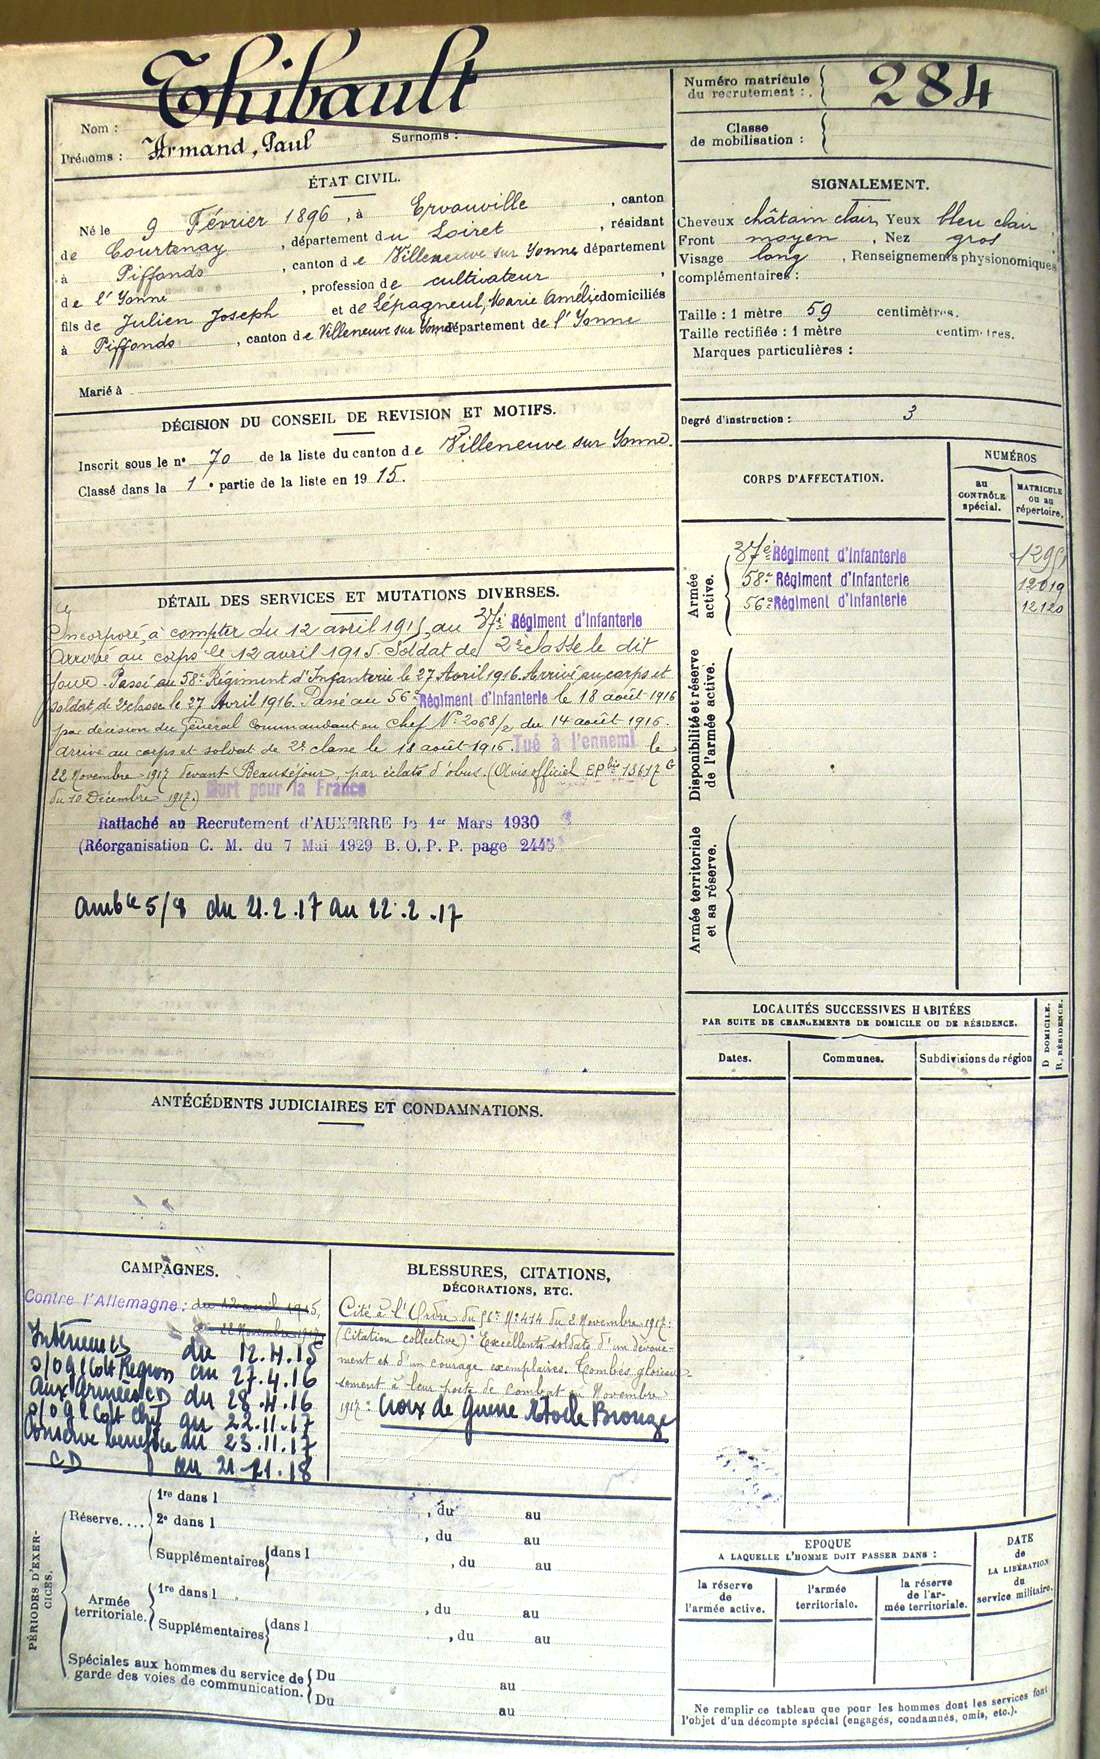 Thibault
Nom :
Prénoms : Armand, Paul Surnoms :
Numéro matricule du recrutement : 284
Classe de mobilisation :
ÉTAT CIVIL.
Né le 9 Février 1896, à Ervauville, canton
de Courtenay, département du Loiret, résidant
à Piffonds, canton de Villeneuve sur Yonne département
de l'Yonne, profession de cultivateur,
fils de Julien Joseph et de Lépagneul, Marie Amélie domiciliés
à Piffonds, canton de Villeneuve sur Yonne département de l'Yonne
Marié à
SIGNALEMENT.
Cheveux châtain clair Yeux bleu clair,
Front moyen, Nez gros
Visage long, Renseignements physionomiques
complémentaires :
Taille : 1 mètre 59 centimètres.
Taille rectifiée : 1 mètre centimètres.
Marques particulières :
Degré d'instruction : 3
DÉCISION DU CONSEIL DE REVISION ET MOTIFS.
Inscrit sous le n° 70 de la liste du canton de Villeneuve sur Yonne.
Classé dans la 1e partie de la liste en 1915.
CORPS D'AFFECTATION.
NUMÉROS
au CONTRÔLE spécial.
MATRICULE ou au répertoire.
Armée active.
37e Régiment d'Infanterie
58e Régiment d'Infanterie 12019
56e Régiment d'Infanterie 12120
Disponibilité et réserve de l'armée active.
Armée territoriale et sa réserve.
DÉTAIL DES SERVICES ET MUTATIONS DIVERSES.
Incorporé à compter du 12 avril 1915, au 37e Régiment d'Infanterie
Arrivé au corps le 12 avril 1915. Soldat de 2e classe le dit
jour. Passé au 58e Régiment d'Infanterie le 27 Avril 1916. Arrivé au corps et
soldat de 2e classe le 27 Avril 1916. Passé au 56e Régiment d'Infanterie le 18 août 1916
par décision du Général Commandant en Chef N° 2068/2 du 14 août 1916.
Arrivé au corps et soldat de 2e classe le 18 août 1916. Tué à l'ennemi le
22 Novembre 1917 devant Beauséjour, par éclats d'obus. (Avis officiel EP bis 13617 G
du 10 Décembre 1917.) Mort pour la France
Rattaché au Recrutement d'AUXERRE le 1er Mars 1930
(Réorganisation C. M. du 7 Mai 1929 B. O. P. P. page 2445
ambce 5/8 du 21.2.17 au 22.2.17
LOCALITÉS SUCCESSIVES HABITÉES
PAR SUITE DE CHANGEMENTS DE DOMICILE OU DE RÉSIDENCE.
Dates. Communes. Subdivisions de région
D DOMICILE.
R. RÉSIDENCE.
ANTÉCÉDENTS JUDICIAIRES ET CONDAMNATIONS.
CAMPAGNES.
Contre l'Allemagne : du 12 avril 1915,
22 Novembre 1917
Intérieur CS du 12.4.15
au 27.4.16
Aux Armées CD du 28.4.16
au 22.11.17
Conserve bénéfice du 23.11.17
CD au 21.11.18
BLESSURES, CITATIONS,
DÉCORATIONS, ETC.
Cité à l'Ordre du 56e N° 474 du 2 Novembre 1917 :
(Citation collective) : Excellents soldats d'un dévoue-
ment et d'un courage exemplaires. Tombés glorieu-
sement à leur poste de combat en Novembre
1917 : Croix de Guerre Etoile Bronze
PÉRIODES D'EXERCICES.
Réserve....
1re dans l , du au
2e dans l , du au
Supplémentaires dans l , du au
Armée territoriale.
1re dans l , du au
Supplémentaires dans l , du au
Spéciales aux hommes du service de garde des voies de communication.
Du au
Du au
EPOQUE
A LAQUELLE L'HOMME DOIT PASSER DANS :
la réserve de l'armée active.
l'armée territoriale.
la réserve de l'armée territoriale.
DATE de LA LIBÉRATION du service militaire.
Ne remplir ce tableau que pour les hommes dont les services font
l'objet d'un décompte spécial (engagés, condamnés, omis, etc.).